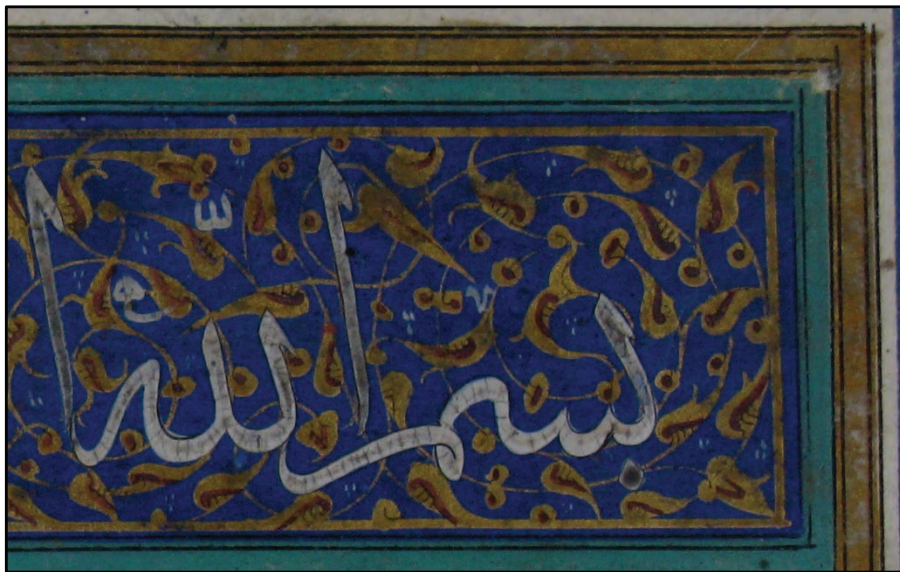 بسم الله ا